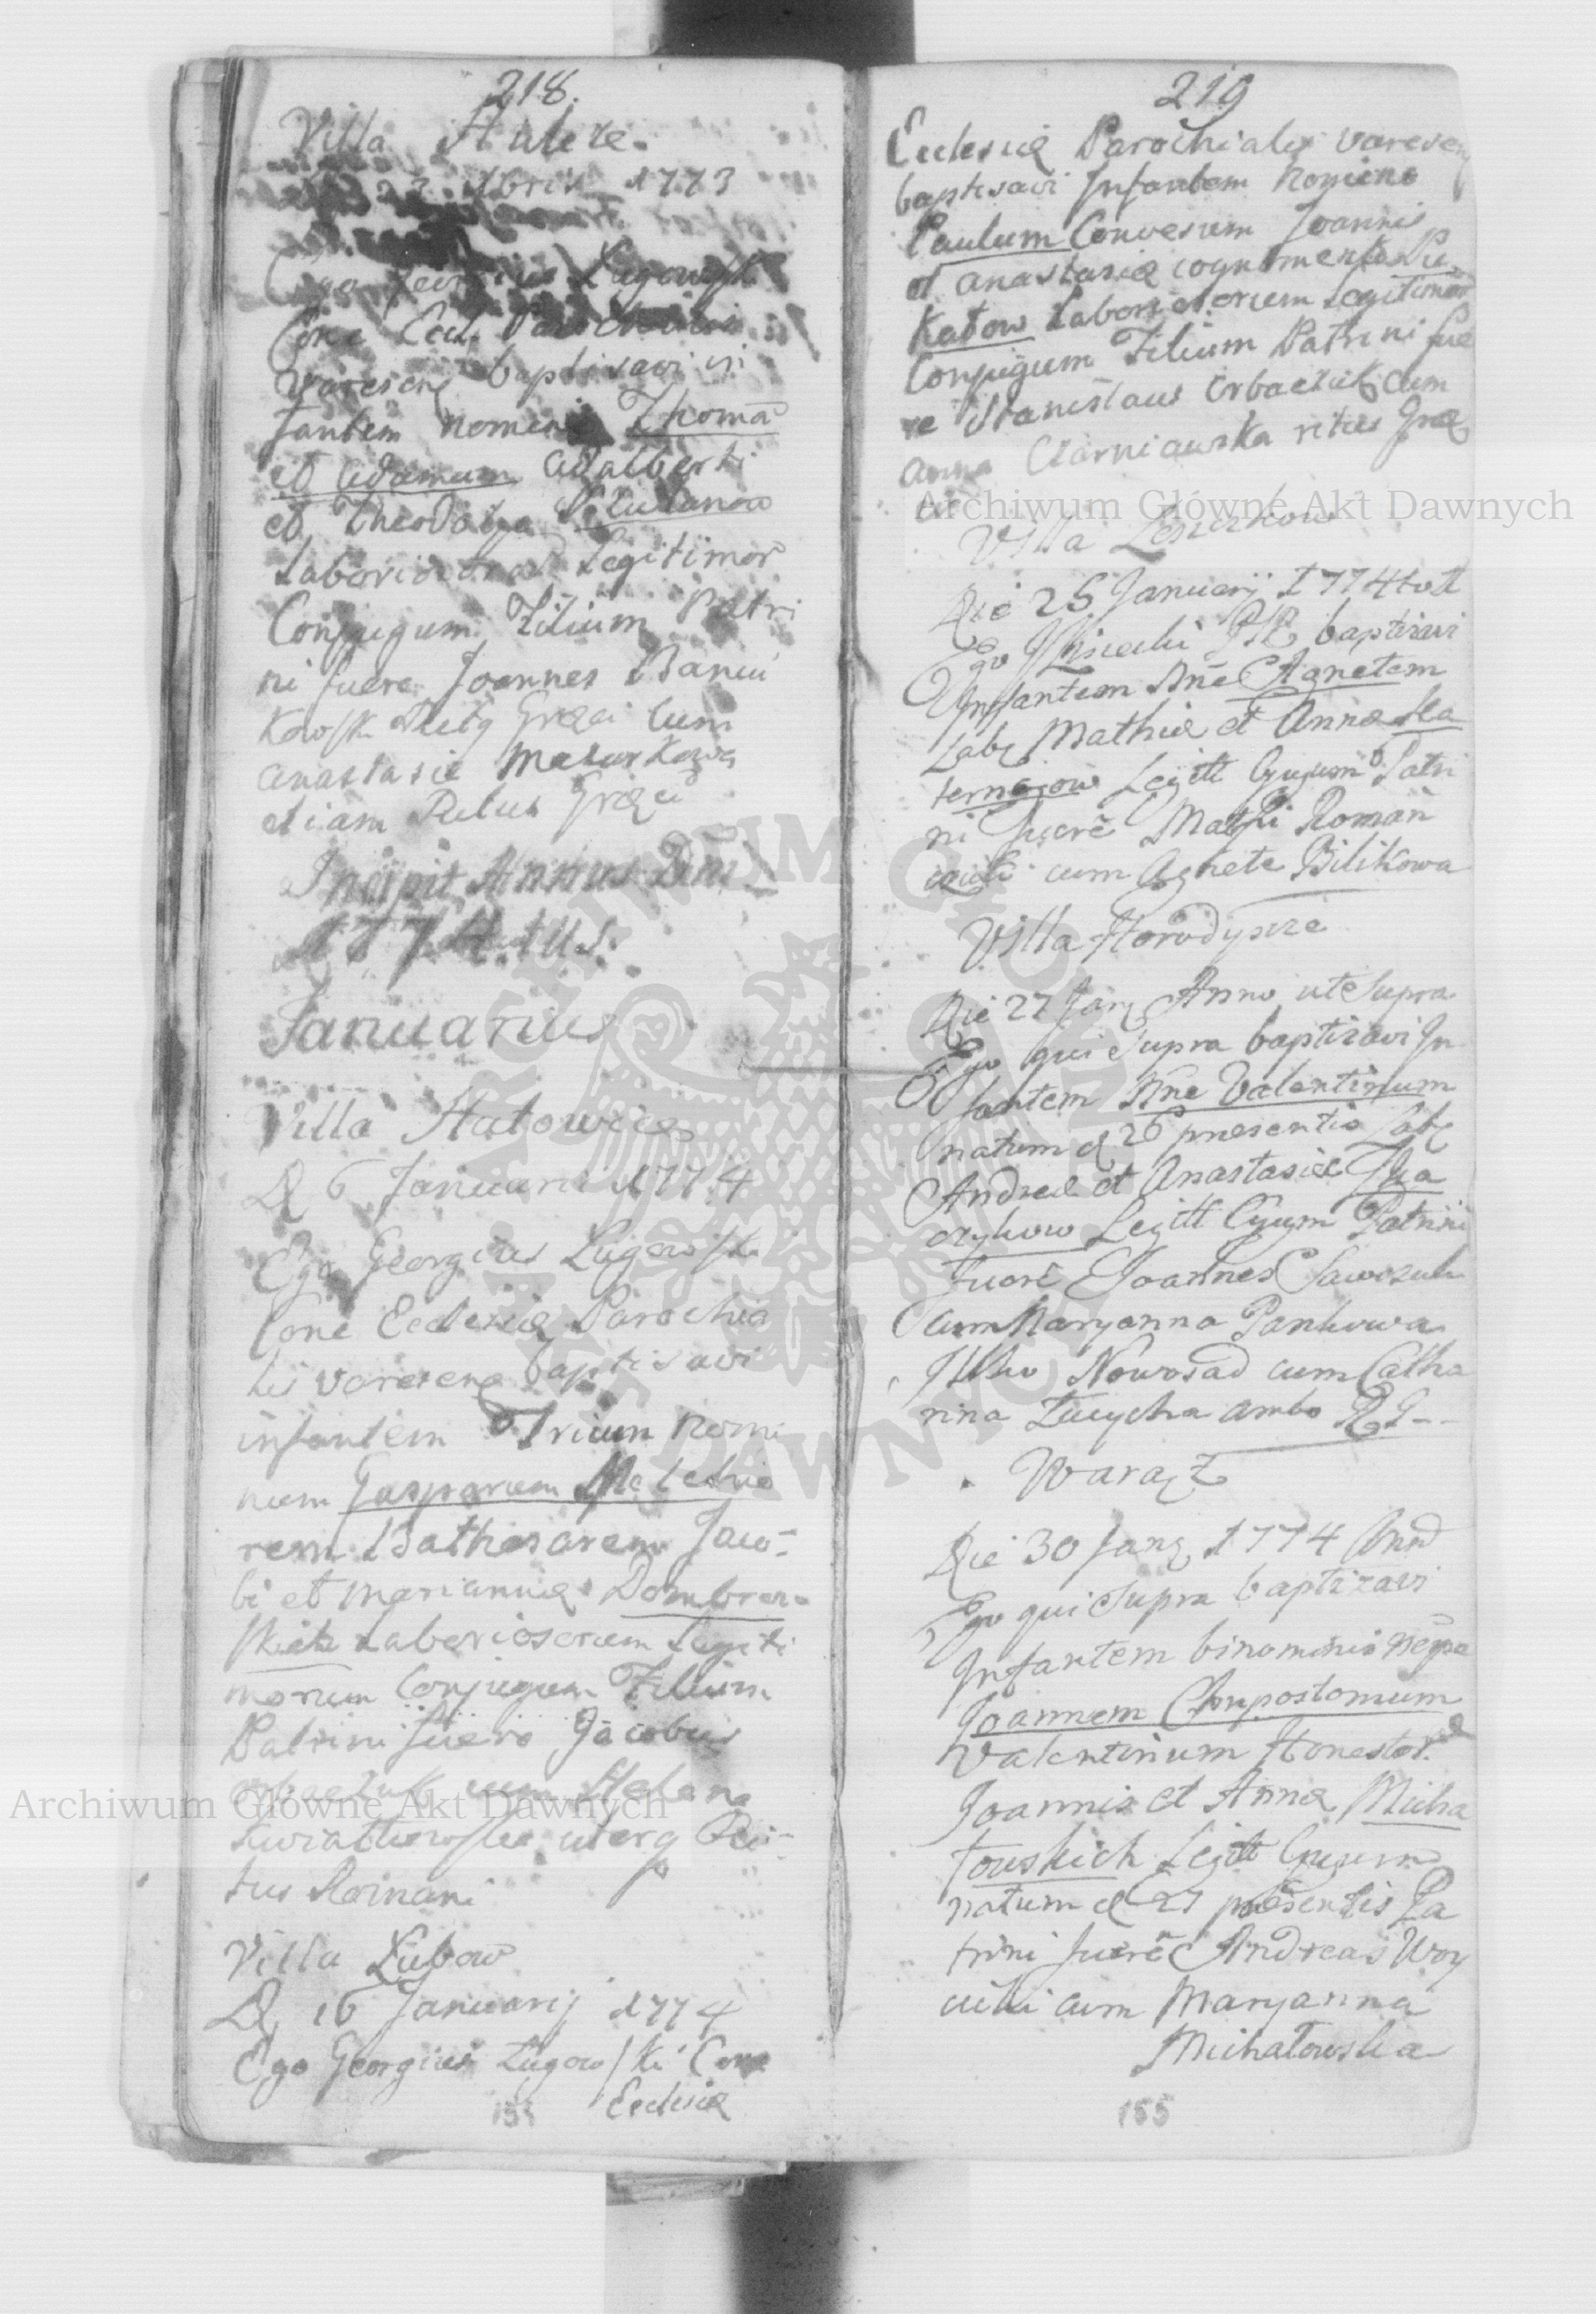 218.
Villa
Xbris 1773
Ego Georgius Lugowski
Cone Eccl. Parochialis
Varesens baptisavi in
fantem nomine Thoma
et Adamum Adalberti
et Theodora
Laboriosorum Legitimor
Conjugum Filium Patri
ni fuere Joannes Baniu
kowsk Ritg Græci cum
Anastasia Mazurkowa
etiam Ritus Græci
Incipit Annus Dni
1774tus.
Januarius
Villa Hatowice
D 6 Januarii 1774
Ego Georgius Lugowski
Cone Ecclesiæ Parochia
lis Varesens baptisavi
infantem Trium Nomi
num Gasparum Melchio
rem Bathasarem Jaco-
bi et Mariannæ Dombrow-
skich Laboriosorum Legiti
morum Conjugum Filium
Patrini fuero Jacobus
cum Helena
Kwiatkowska uterq Ri-
tus Romani
Villa Lubow
D 16 Januarij 1774
Ego Georgius Lugowski Cone
Ecclesiæ
219
Ecclesiæ Parochialis Varesens
baptisavi Infantem Nomine
Paulum Conversum Joannis
et Anastasiæ cognomento Pu
katow Laboriosorum Legitimor
Conjugum Filium Patrini fue
re Stanislaus Orbaczuk cum
Anna Czarniawska ritus Græ
ci
Villa Leszczkow
Die 25 Januarij 1774to
Ego baptizavi
Infantem Nne Agnetem
Lab Mathiæ et Annæ Ka
ternogow Legitt Cjugum Patri
ni fuerē Mathi Roman
cum Agnete Bilikowa
Villa Horodyszcze
Die 27 Janq Anno ut Supra
Ego qui Supra baptizavi In
fantem Nne Valentinum
natum d 26 præsentis Lab
Andreæ et Anastasiæ
Legitt Cjugum Patrini
fuerē Joannes Sawczuk
cum Maryanna Pankowa
Ilko Nowosad cum Catha
rina Lucycha ambo R G--
Warąż
Die 30 Janq 1774 Ann
Ego qui Supra baptizavi
Infantem binominis nempe
Joannem Chrysostomum
Valentinum Honestor
Joannis et Annæ Micha
łowskich Legitt Cjugum
natum d 27 præsentis Pa
trini fuerē Andreas Woy
cicki cum Maryanna
Michałowska
155
Archiwum Główne Akt Dawnych
Archiwum Główne Akt Dawnych
ARCHIWUM GŁÓWNE AKT DAWNYCH